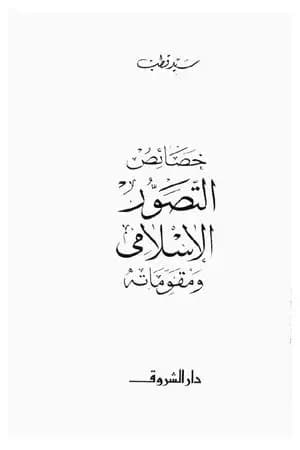 سيد قطب
خصائص
التصوّر
الإسلامى
ومقوّماته
دار الشروق